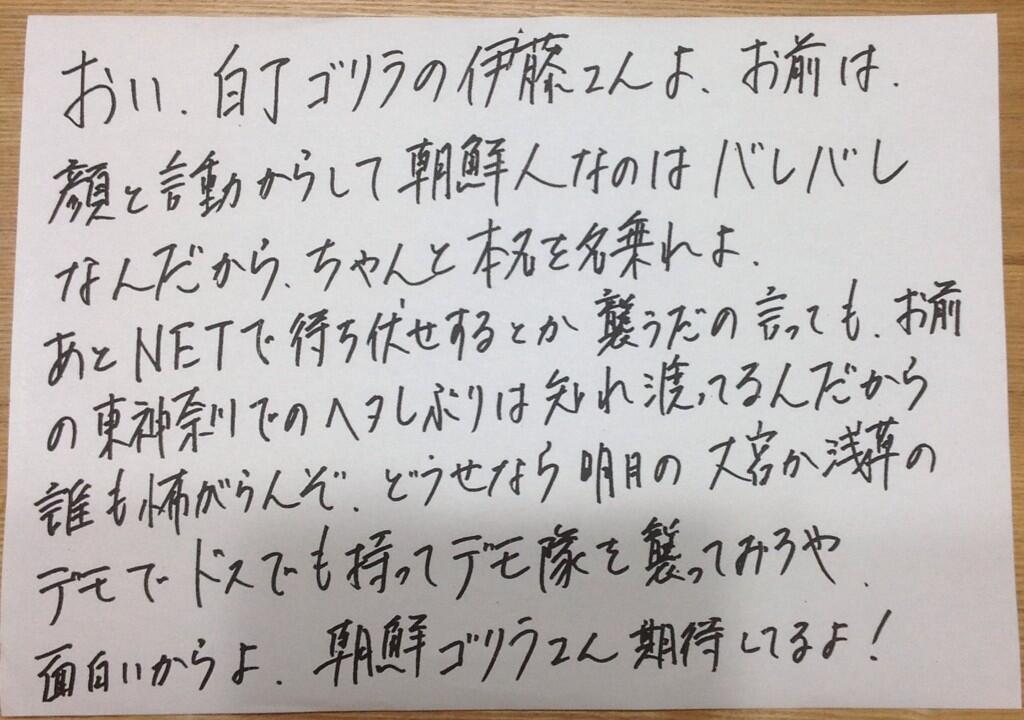 おい、白丁ゴリラの伊藤くんよ、お前は、
顔と言動からして朝鮮人なのはバレバレ
なんだから、ちゃんと本名を名乗れよ、
あとNETで待ち伏せするとか襲うだの言っても、お前
の東神奈川でのヘタレぶりは知れ渡ってるんだから
誰も怖がらんぞ、どうせなら明日の大宮か浅草の
デモでドスでも持ってデモ隊を襲ってみろや、
面白いからよ、朝鮮ゴリラくん期待してるよ!